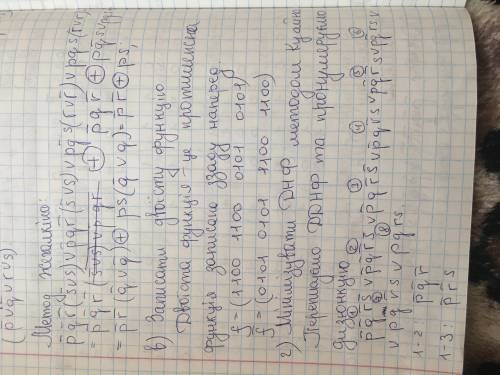 (p̄ ∨ q̄ ∨ r ∨ s)
Метод Жегалкіна:
p̄ q̄ r̄ (s̄ ∨ s) ∨ p̄ q r̄ (s̄ ∨ s) ∨ p q̄ s (r̄ ∨ r) ∨ p q s (r̄ ∨ r)
= p̄ q̄ r̄ ⊕ p̄ q r̄ ⊕ p q̄ s ∨ p q s
= p̄ r̄ (q̄ ∨ q) ⊕ p s (q̄ ∨ q) = p̄ r̄ ⊕ p s;
в) Записати двоїсту функцію
Двоїста функція – це протилежна
функція записана ззаду наперед.
f = (1100 1100 0101 0101)
f = (0101 0101 1100 1100)
г) Мінімізувати ДНФ методом Куайна
Перепишемо ДДНФ та пронумеруємо
диз'юнкцію
① ② ③ ④ ⑤ ⑥
p̄ q̄ r̄ s̄ ∨ p̄ q̄ r̄ s ∨ p̄ q r̄ s̄ ∨ p̄ q r̄ s ∨ p q̄ r̄ s ∨
∨ p q r̄ s ∨ p q r s.
1-2: p̄ q̄ r̄
1-3: p̄ r̄ s̄